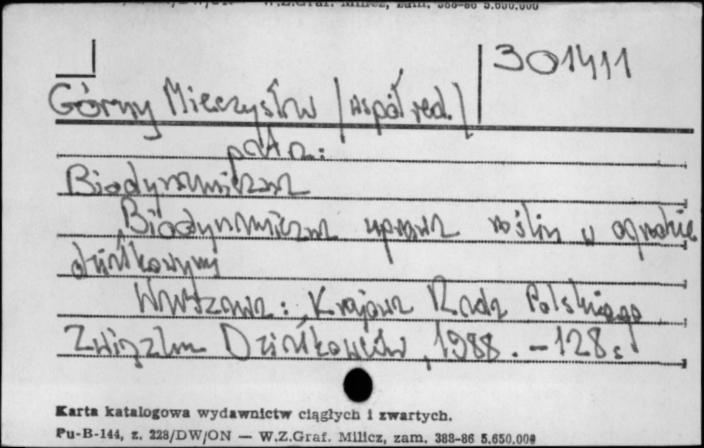 W.Z.Graf. Milicz, zam. 388-86 5.650.000
301411
Górny Mieczysław /współred./
patrz:
Biodynamiczna
Biodynamiczna uprawa roślin w ogrodzie
działkowym
Warszawa: Krajowa Rada Polskiego
Związku Działkowców, 1988. - 128 s.
Karta katalogowa wydawnictw ciągłych i zwartych.
Pu-B-144, z. 228/DW/ON — W.Z.Graf. Milicz, zam. 388-86 5.650.000